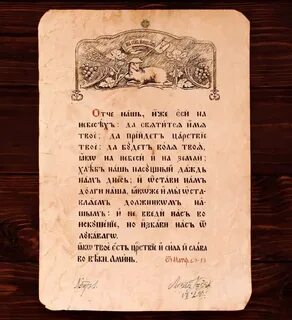 Отче нашъ, иже еси на
небесѣхъ: да свѧтитсѧ имѧ
твое; да прїидетъ царствїе
твое; да будетъ волѧ твоѧ,
ꙗкѡ на небеси и на земли;
хлѣбъ нашъ насущный даждь
намъ днесь; и ѡстави намъ
долги нашѧ, ꙗкоже и мы ѡста
влѧемъ должникѡмъ на
шымъ; и не введи насъ во
искушенїе, но избави насъ ѿ
лукавагѡ.
ꙗкѡ твое есть цр҃ствїе и сила и слава
во вѣки. Аминь.